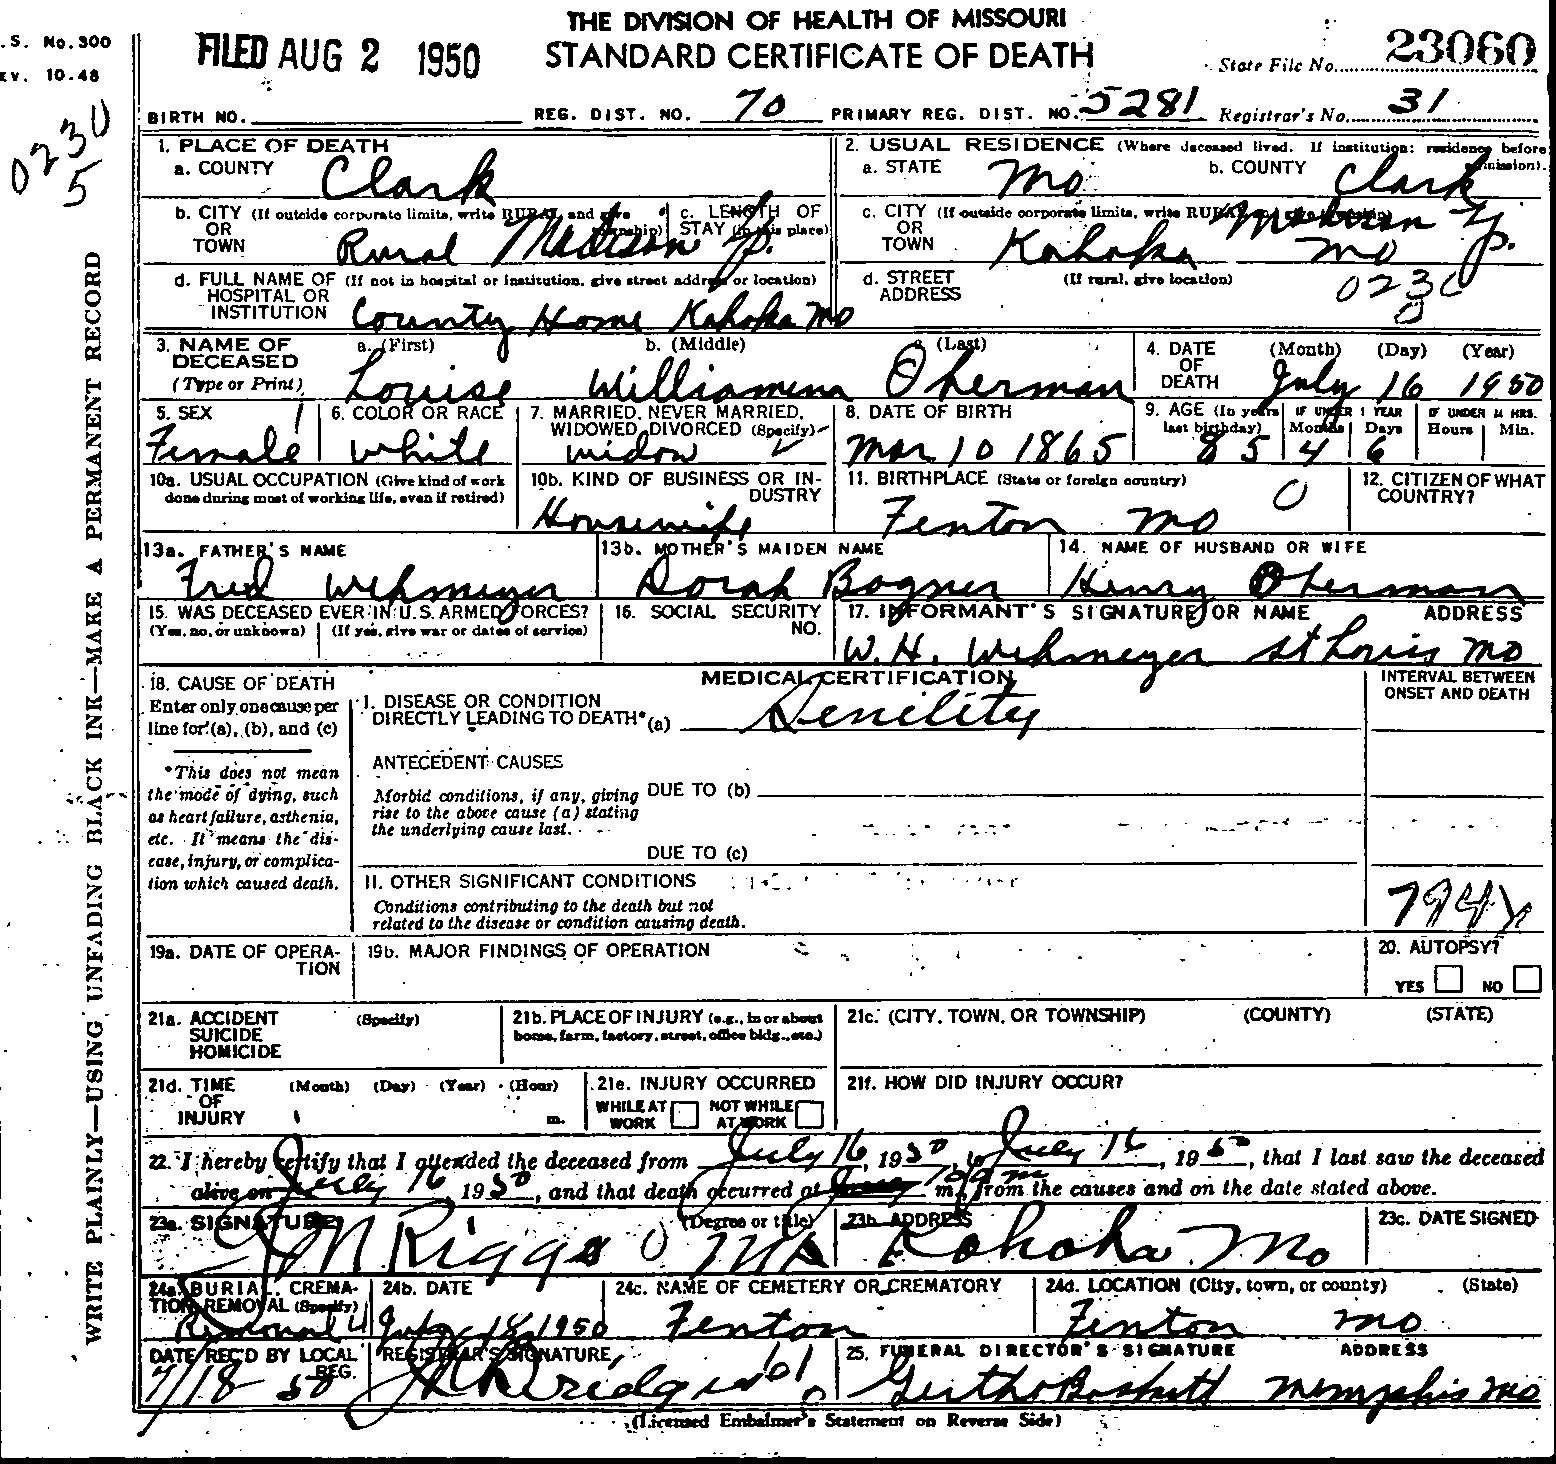 THE DIVISION OF HEALTH OF MISSOURI
.S. No.300
EV. 10-48
FILED AUG 2 1950 STANDARD CERTIFICATE OF DEATH State File No. 23060
BIRTH NO. REG. DIST. NO. 70 PRIMARY REG. DIST. NO. 5281 Registrar's No. 31
0230
5
WRITE PLAINLY—USING UNFADING BLACK INK—MAKE A PERMANENT RECORD
1. PLACE OF DEATH
a. COUNTY Clark
2. USUAL RESIDENCE (Where deceased lived. If institution: residence before admission).
a. STATE Mo b. COUNTY Clark
b. CITY (If outside corporate limits, write RURAL and give township)
OR
TOWN Rural Madison Tp.
c. LENGTH OF
STAY (in this place)
c. CITY (If outside corporate limits, write RURAL
OR
TOWN Kahoka Mo Madison Tp.
d. FULL NAME OF (If not in hospital or institution, give street address or location)
HOSPITAL OR
INSTITUTION County Home Kahoka Mo
d. STREET (If rural, give location)
ADDRESS 0230
0
3. NAME OF DECEASED
(Type or Print)
a. (First) b. (Middle) c. (Last)
Louise Williamina Oherman
4. DATE OF DEATH (Month) (Day) (Year)
July 16 1950
5. SEX
Female 1
6. COLOR OR RACE
White
7. MARRIED, NEVER MARRIED,
WIDOWED, DIVORCED (Specify)
Widow
8. DATE OF BIRTH
Mar 10 1865
9. AGE (In years last birthday) IF UNDER 1 YEAR Months Days IF UNDER 24 HRS. Hours Min.
85 4 6
10a. USUAL OCCUPATION (Give kind of work
done during most of working life, even if retired)
10b. KIND OF BUSINESS OR IN-
DUSTRY
Housewife
11. BIRTHPLACE (State or foreign country)
Fenton Mo 0
12. CITIZEN OF WHAT
COUNTRY?
13a. FATHER'S NAME
Fred Wehmeyer
13b. MOTHER'S MAIDEN NAME
Dorah Bogner
14. NAME OF HUSBAND OR WIFE
Henry Oherman
15. WAS DECEASED EVER IN U.S. ARMED FORCES?
(Yes, no, or unknown) (If yes, give war or dates of service)
16. SOCIAL SECURITY
NO.
17. INFORMANT'S SIGNATURE OR NAME ADDRESS
W. H. Wehmeyer St Louis Mo
18. CAUSE OF DEATH
Enter only one cause per
line for (a), (b), and (c)
*This does not mean
the mode of dying, such
as heart failure, asthenia,
etc. It means the dis-
ease, injury, or complica-
tion which caused death.
MEDICAL CERTIFICATION
I. DISEASE OR CONDITION
DIRECTLY LEADING TO DEATH* (a) Senility
INTERVAL BETWEEN
ONSET AND DEATH
ANTECEDENT CAUSES
Morbid conditions, if any, giving
rise to the above cause (a) stating
the underlying cause last.
DUE TO (b)
DUE TO (c)
II. OTHER SIGNIFICANT CONDITIONS
Conditions contributing to the death but not
related to the disease or condition causing death.
794X
19a. DATE OF OPERA-
TION
19b. MAJOR FINDINGS OF OPERATION
20. AUTOPSY?
YES NO
21a. ACCIDENT (Specify)
SUICIDE
HOMICIDE
21b. PLACE OF INJURY (e.g., in or about
home, farm, factory, street, office bldg., etc.)
21c. (CITY, TOWN, OR TOWNSHIP) (COUNTY) (STATE)
21d. TIME (Month) (Day) (Year) (Hour)
OF
INJURY m.
21e. INJURY OCCURRED
WHILE AT WORK NOT WHILE AT WORK
21f. HOW DID INJURY OCCUR?
22. I hereby certify that I attended the deceased from July 16, 1950, to July 16, 1950, that I last saw the deceased
alive on July 16, 1950, and that death occurred at m., from the causes and on the date stated above.
23a. SIGNATURE (Degree or title)
Riggs MD
23b. ADDRESS
Kahoka Mo
23c. DATE SIGNED
24a. BURIAL, CREMA-
TION, REMOVAL (Specify)
Removal
24b. DATE
July 18 1950
24c. NAME OF CEMETERY OR CREMATORY
Fenton
24d. LOCATION (City, town, or county) (State)
Fenton Mo
DATE REC'D BY LOCAL
REG.
7/18 50
REGISTRAR'S SIGNATURE
25. FUNERAL DIRECTOR'S SIGNATURE ADDRESS
Memphis Mo
(Licensed Embalmer's Statement on Reverse Side)